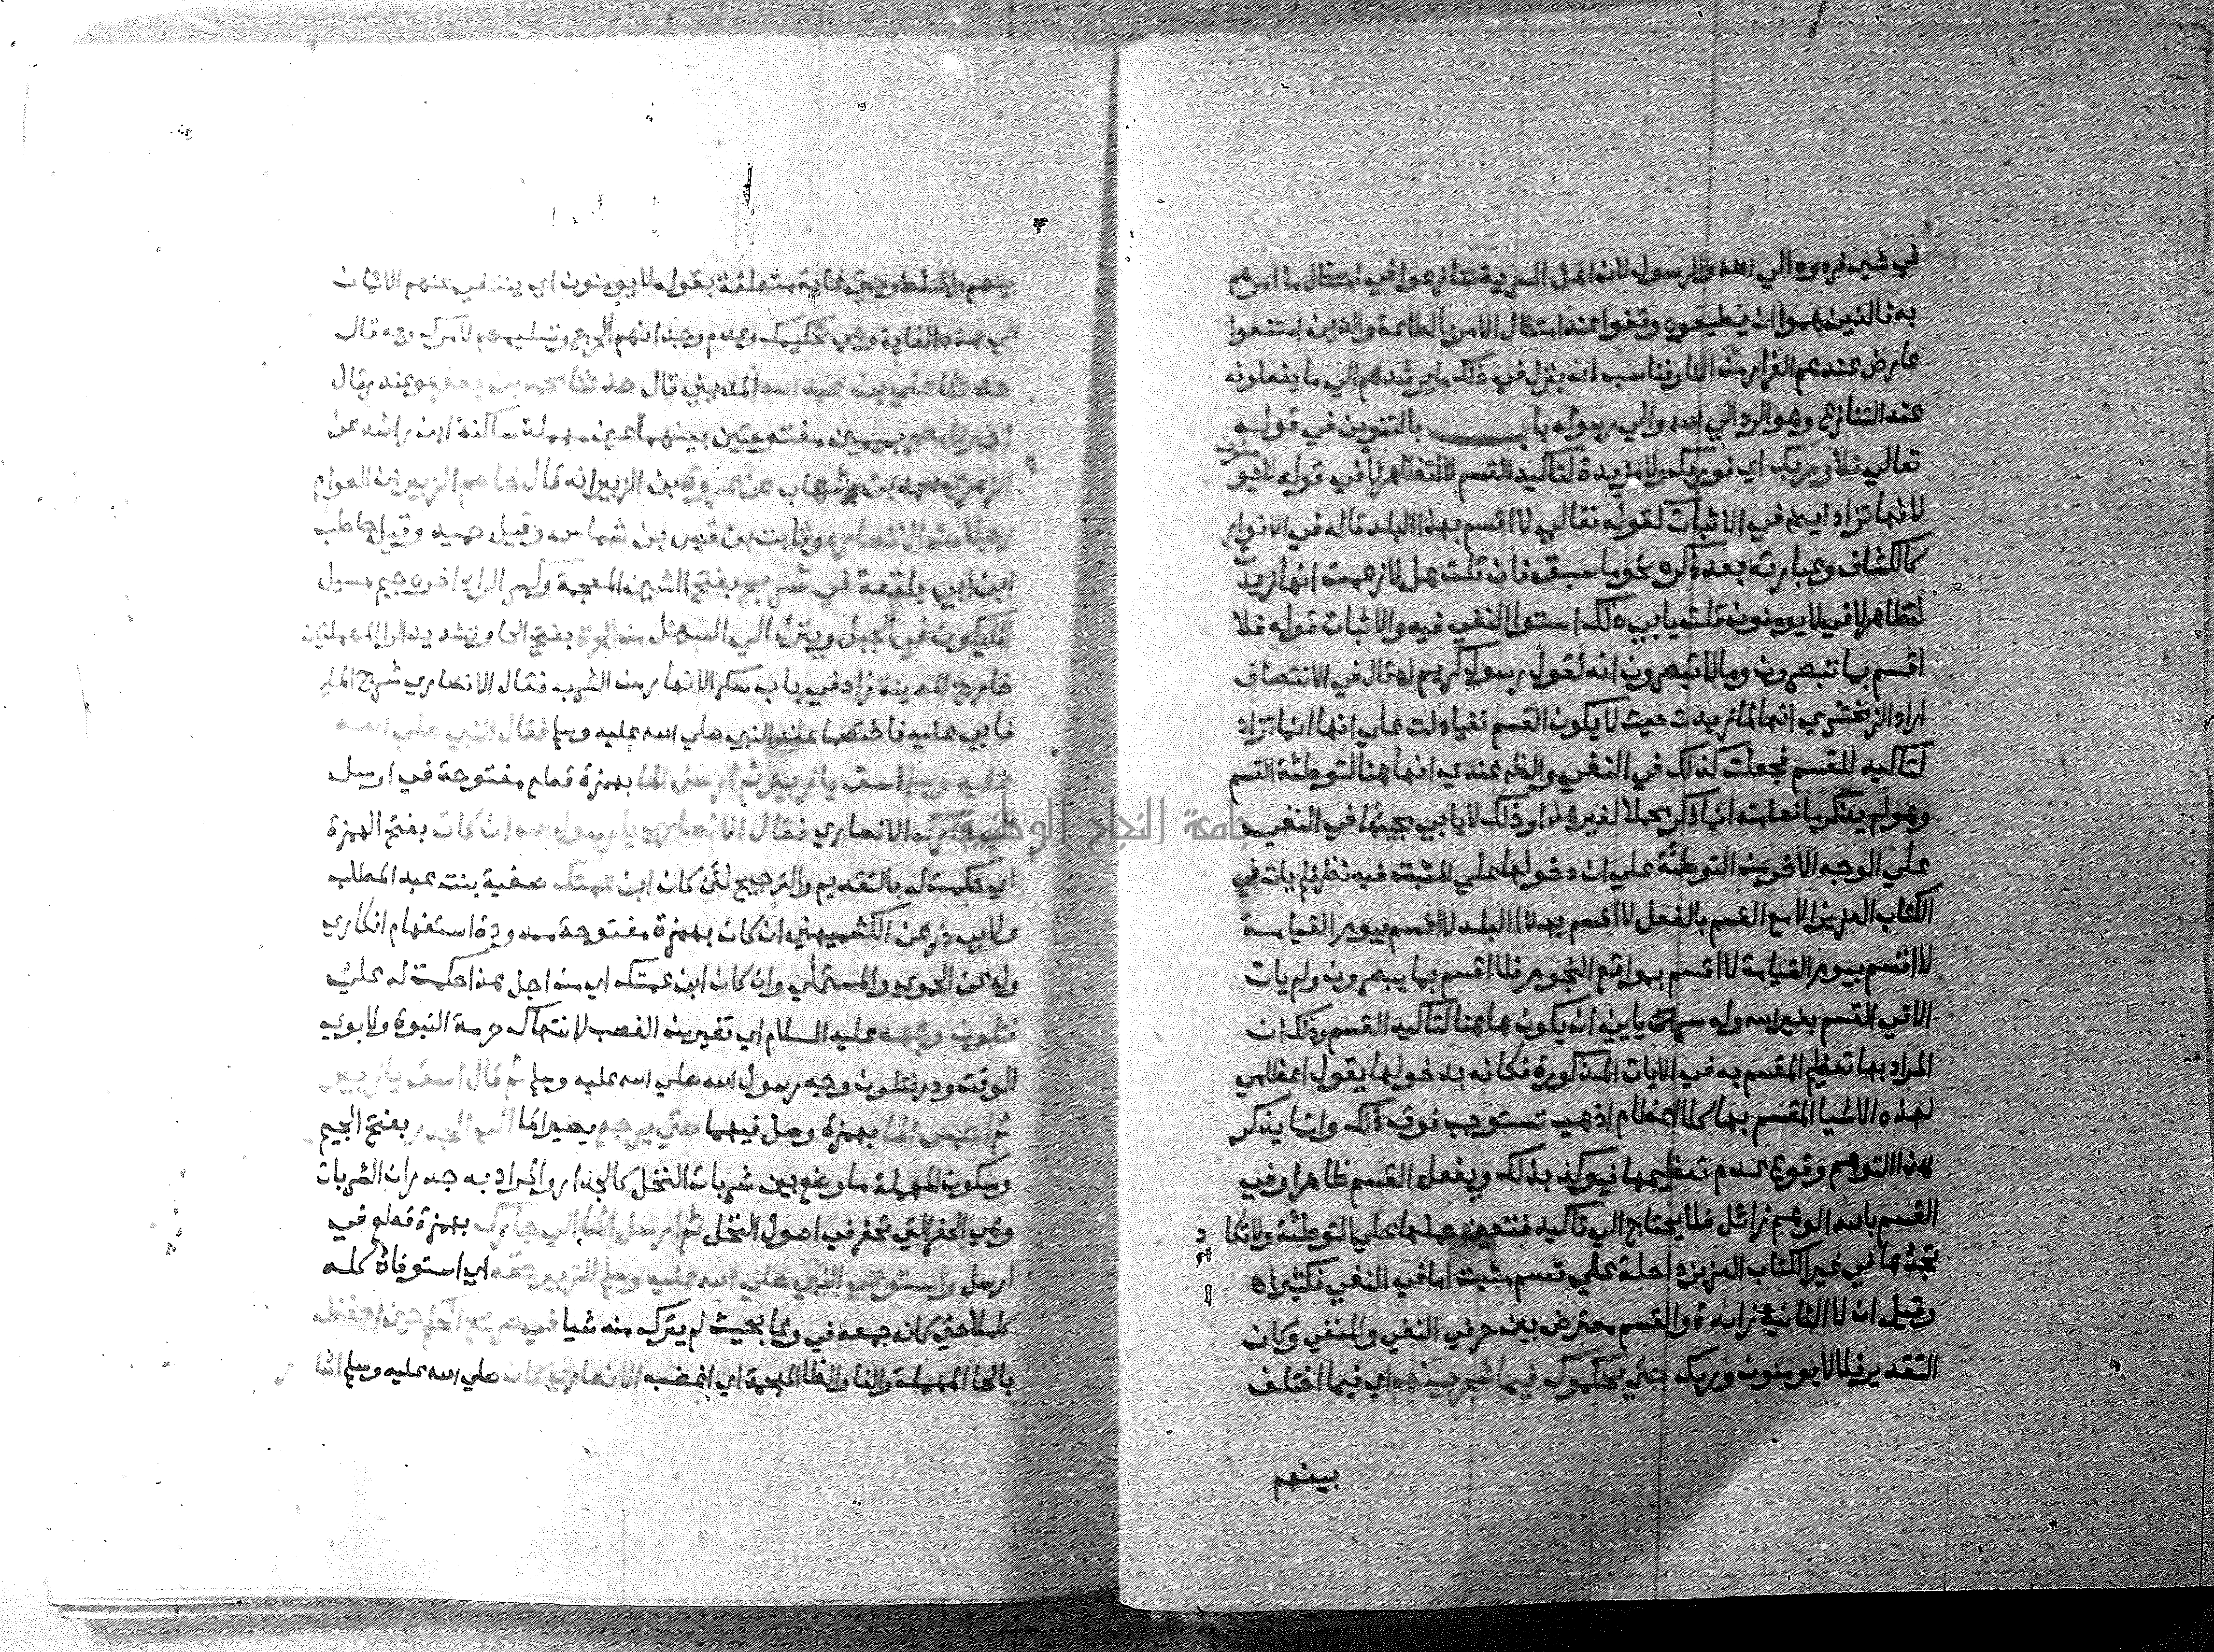 في شيء فردوه الي الله والرسول لان اهل السرية تنازعوا في امتثال ما امرهم
به فالذين هموا ان يطيعوه وقفوا عند امتثال الامر بالطاعة والذين امتنعوا
عارض عندهم الفرار من النار فناسب ان ينزل في ذلك ما يرشدهم الي ما يفعلونه
عند التنازع وهو الرد الي الله والي رسوله باب بالتنوين في قوله
تعالي فلا وربك اي فوربك ولا مزيدة لتاكيد القسم لا لتظاهر لا في قوله لا يو
منون
لانها تزاد ايضا في الاثبات كقوله تعالي لا اقسم بهذا البلد قاله في الانوار
كالكشاف وعبارته بعد ذكره نحو ما سبق فان قلت هل لا زعمت انها زيدت
لتظاهر لا في لا يومنون قلت يابي ذلك استوا النفي فيه والاثبات قوله فلا
اقسم بما تبصرون وما لا تبصرون انه لقول رسول كريم اه قال في الانتصاف
اراد الزمخشري انها لما زيدت حيث لا يكون القسم نفيا دلت علي انها انما تزاد
لتاكيد القسم فجعلت كذلك في النفي والظـ عندي انها هنا لتوطئة القسم
وهو لم يذكر مانعا منه انما ذكر محملا لغير هذا وذلك لا يابي مجيئها في النفي
علي الوجه الاخر من التوطئة علي ان دخولها علي المثبت فيه نظر فلم يات في
الكتاب العزيز الا مع القسم بالفعل لا اقسم بهذا البلد لا اقسم بيوم القيامة
لا اقسم بيوم القيامة لا اقسم بمواقع النجوم فلا اقسم بما يبصرون ولم يات
الا في القسم بغير الله وله يابين ان يكون هاهنا لتاكيد القسم وذلك ان
المراد بها تعظيم المقسم به في الايات المذكورة فكانه بدخولها يقول اعظامي
لهذه الاشيا المقسم بها كلا اعظام اذ هي تستوجب فوق ذلك وانما يذكر
هذا التوهم وقوع عدم تعظيمها فيوكد بذلك وبفعل القسم ظاهرا وفي
القسم بالله الوهم زائل فلا يحتاج الي تاكيد فتعين حملها علي التوطئة ولا تكا
د
تجدها في غير الكتاب العزيز داخلة علي قسم مثبت اما في النفي فكثير اه
وقيل ان لا الثانية زائدة والقسم معترض بين حرفي النفي والمنفي وكان
التقدير فلا لا يومنون وربك حتي يحكموك فيما شجر بينهم اي فيما اختلف
بينهم
بينهم واختلط وحتي غاية متعلقة بقوله لا يومنون اي ينتفي عنهم الايمان
الي هذه الغاية وهي تحكيمك وعدم وجدانهم الحرج وتسليمهم لامرك وبه قال
حدثنا علي بن عبد الله المديني قال حدثنا محمد بن جعفر هو غندر قال
اخبرنا معمر بميمين مفتوحتين بينهما عين مهملة ساكنة ابن راشد عن
الزهري محمد بن شهاب عن عروة بن الزبير انه قال خاصم الزبير ابن العوام
رجلا من الانصار هو ثابت بن قيس بن شماس وقيل حميد وقيل حاطب
ابن ابي بلتعة في شريج بفتح الشين المعجمة وكسر الرا اخره جيم مسيل
الما يكون في الجبل وينزل الي السهل من الحرة بفتح الحا وتشديد الرا المهملتين
خارج المدينة زاد في باب سكر الانهار من الشرب فقال الانصاري سرح الما
فابي عليه فاختصما عند النبي صلي الله عليه وسلم فقال النبي صلي الله
عليه وسلم اسق يا زبير ثم ارسل الما بهمزة قطع مفتوحة في ارسل
الي جارك الانصاري فقال الانصاري يا رسول الله ان كان بفتح الهمزة
اي حكمت له بالتقديم والترجيح لان كان ابن عمتك صفية بنت عبد المطلب
ولابي ذر عن الكشميهني ان كان بهمزة مفتوحة ممدودة استفهام انكاري
وله عن الحموي والمستملي وان كان ابن عمتك اي من اجل هذا حكمت له علي
فتلون وجهه عليه السلام اي تغير من الغضب لانتهاك حرمة النبوة ولابوي
الوقت وذر فتلون وجه رسول الله صلي الله عليه وسلم ثم قال اسق يا زبير
ثم احبس الما بهمزة وصل فيهما حتي يرجع يصير الما الي الجدر بفتح الجيم
وسكون المهملة ما وضع بين شربات النخل كالجدار والمراد به جدران الشربات
وهي الحفر التي تحفر في اصول النخل ثم ارسل الما الي جارك بهمزة قطع في
ارسل واستوعي النبي صلي الله عليه وسلم للزبير حقه اي استوفاه كله
كاملا حتي كانه جمعه في وعا بحيث لم يترك منه شيا في صريح الحكم حين احفظه
بالحا المهملة والفا والظا المعجمة اي اغضبه الانصاري كان صلي الله عليه وسلم اشا
جامعة النجاح الوطنية